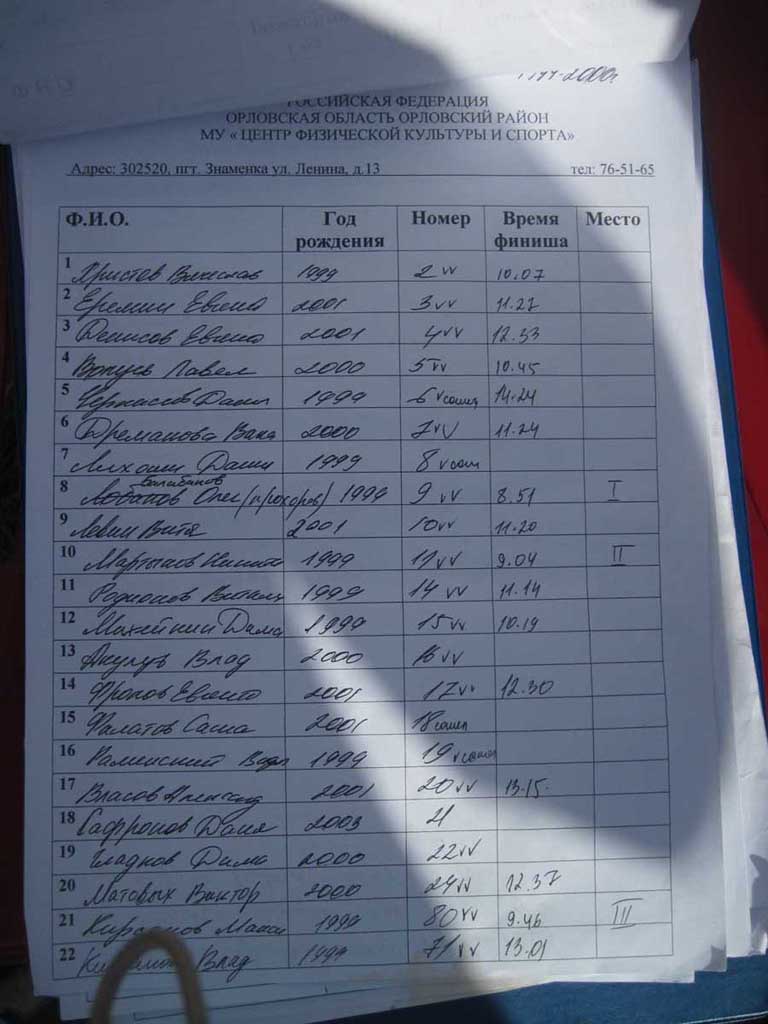 РОССИЙСКАЯ ФЕДЕРАЦИЯ
ОРЛОВСКАЯ ОБЛАСТЬ ОРЛОВСКИЙ РАЙОН
МУ « ЦЕНТР ФИЗИЧЕСКОЙ КУЛЬТУРЫ И СПОРТА»
Адрес: 302520, пгт. Знаменка ул. Ленина, д.13 тел: 76-51-65
Ф.И.О. Год рождения Номер Время финиша Место
1 Христов Вячеслав 1999 2 vv 10.07
2 Еремин 2001 3 vv 11.27
3 Денисов 2001 4 vv 12.33
4 Павел 2000 5 vv 10.45
5 1999 6 v сошел 14.24
6 Дреманова Ваня 2000 7 vv 11.24
7 1999 8 v сош
8 Балабанов Олег (Прохоров) 1999 9 vv 8.51 I
9 Левин Витя 2001 10 vv 11.20
10 1999 11 vv 9.04 II
11 Родионов 1999 14 vv 11.14
12 Дима 1999 15 vv 10.19
13 Акулув Влад 2000 16 vv
14 Фролов 2001 17 vv 12.30
15 Филатов Саша 2001 18 сошел
16 Раменский 1999 19 v сошел
17 Власов 2001 20 vv 13.15
18 Сафронов Даня 2003 21
19 Гладков Дима 2000 22 vv
20 Матовых Виктор 2000 24 vv 12.37
21 1999 80 vv 9.46 III
22 Влад 1999 71 vv 13.01